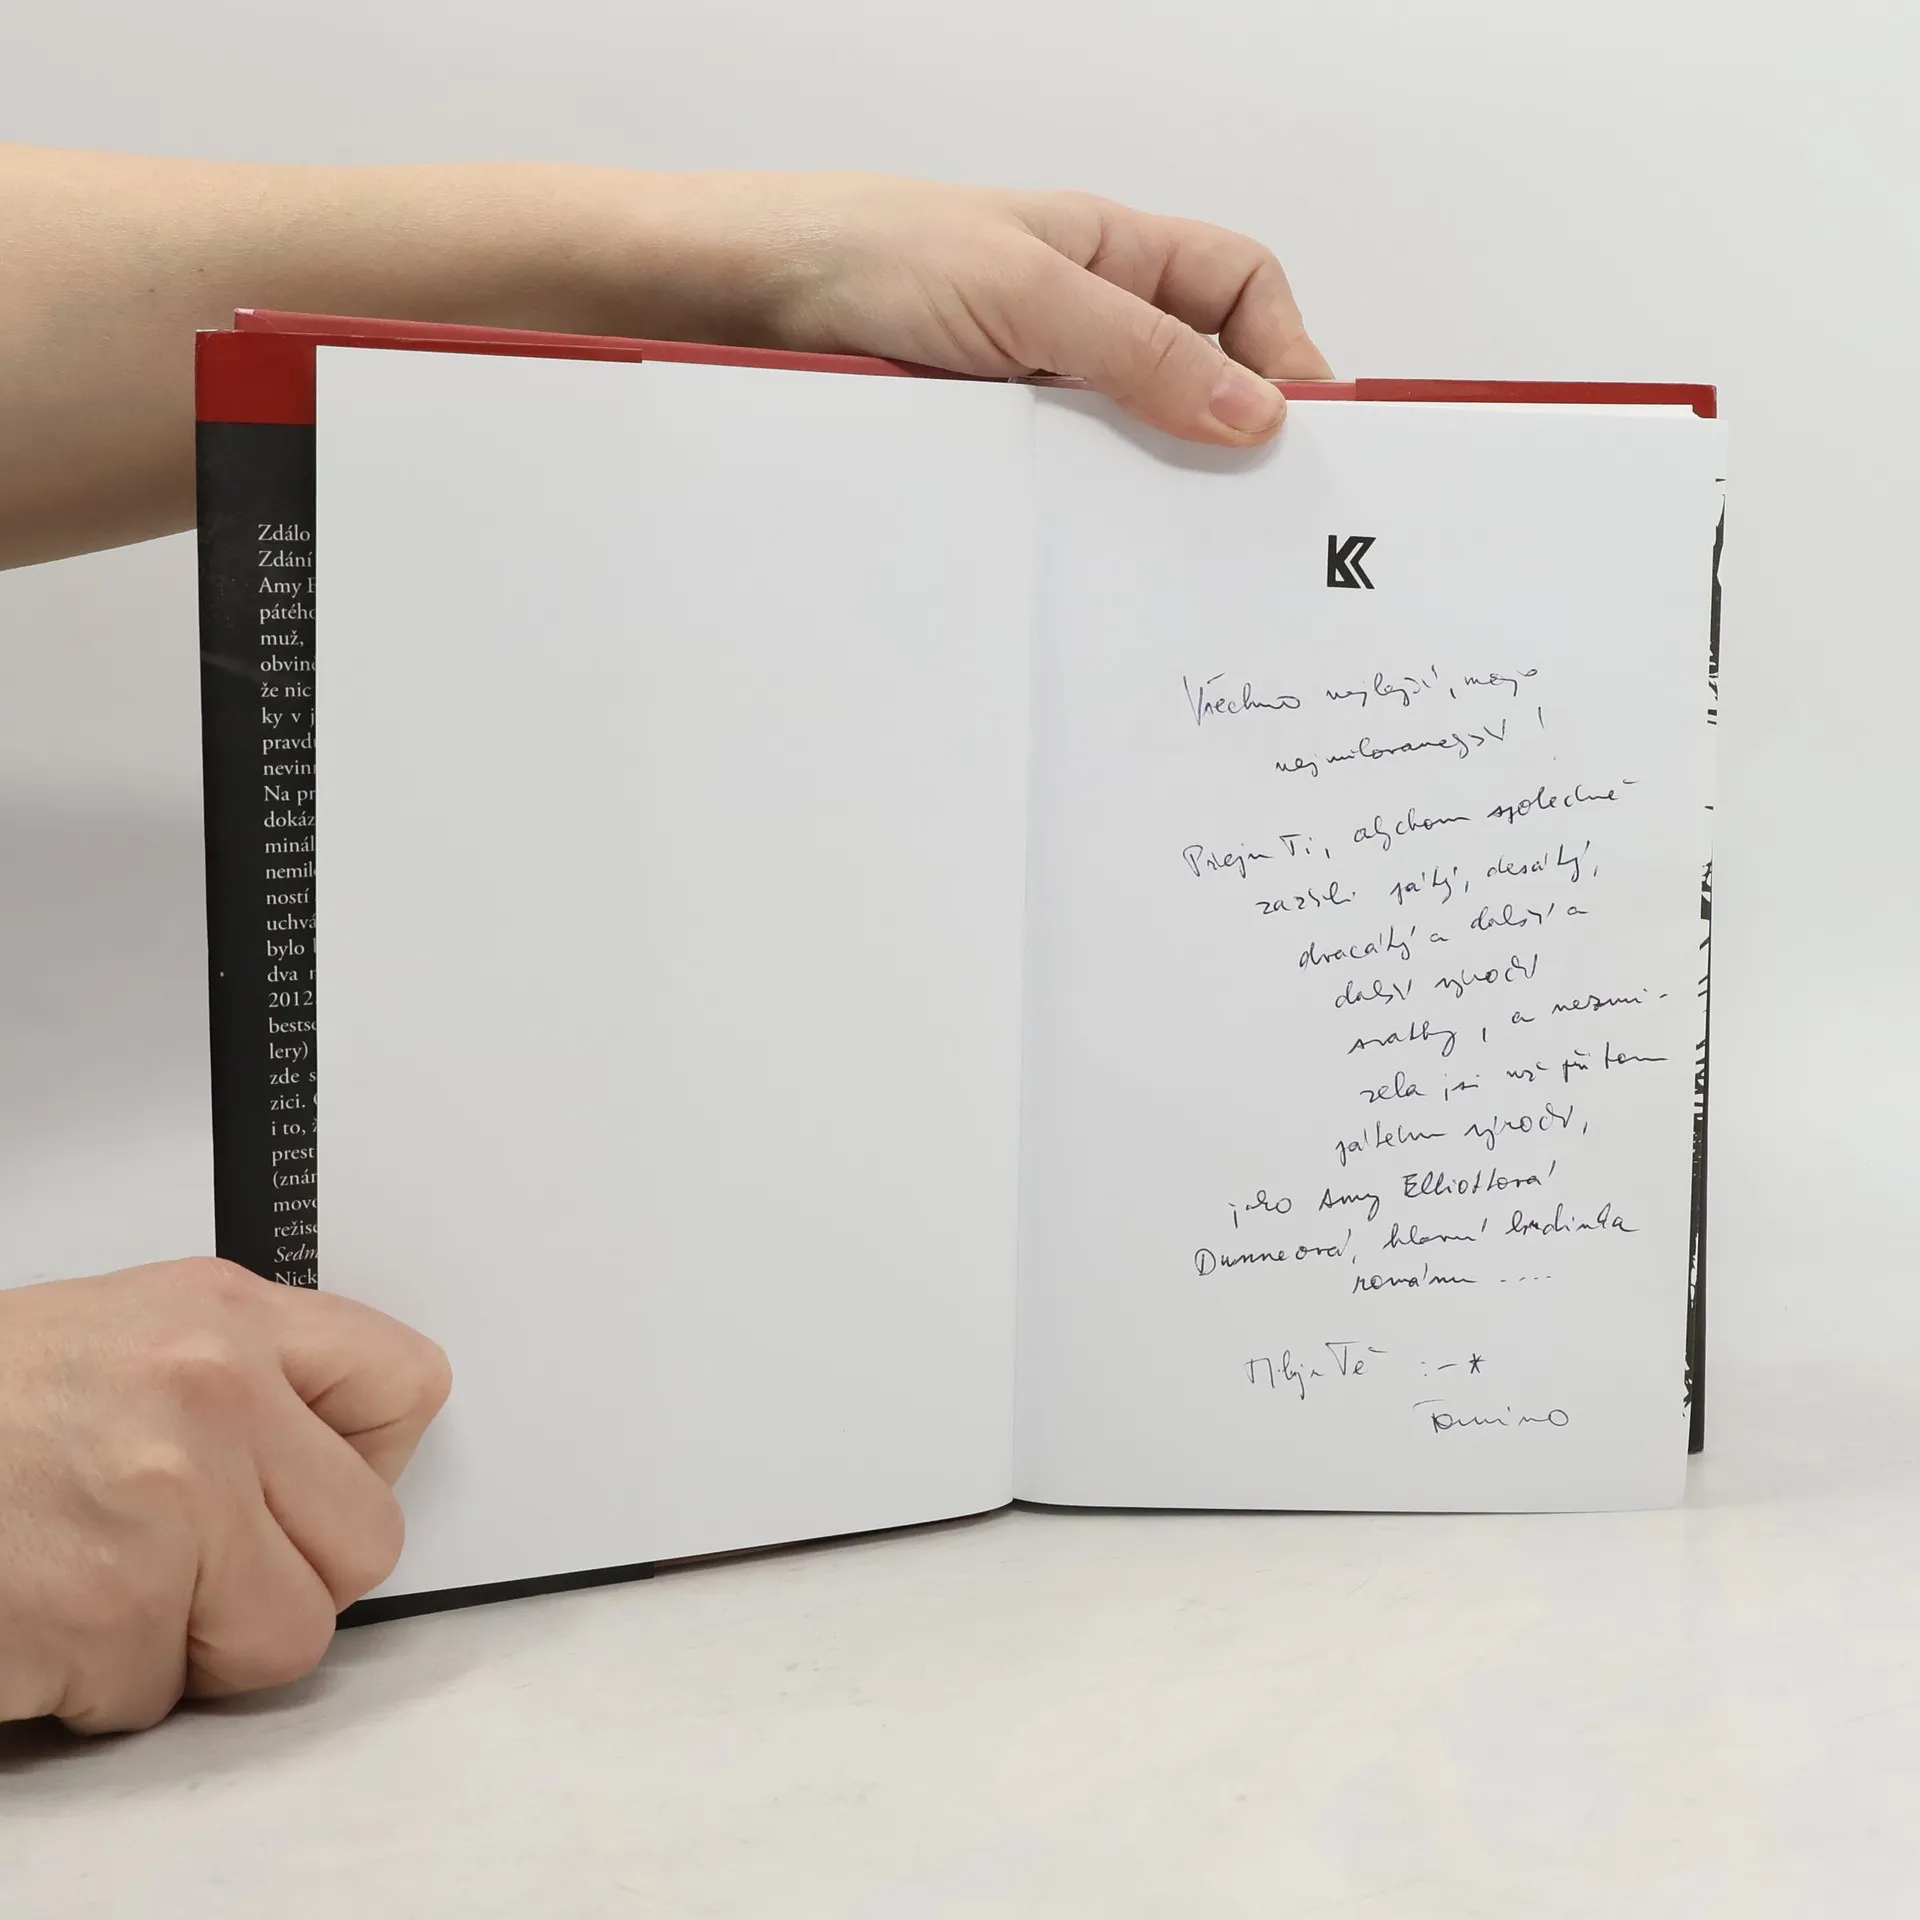 Zdálo
Zdání
Amy E
pátého
muž,
obvině
že nic
ky v j
pravdu
nevinn
Na pr
dokáz
minál
nemile
ností
uchvá
bylo
dva r
2012
bestse
lery)
zde s
zici.
i to, ž
prest
(znám
move
režisé
Sedm
Nick
K
Všechno nejlepší, moje
nejmilovanejší!
Přeju Ti, abychom společně
zažili pátý, desátý,
dvacátý a další a
další výročí
svatby, a nezmi-
zela jsi už při tom
pátém výročí,
jako Amy Elliottová
Dunneová, hlavní hrdinka
románu ....
Miluju Tě :-*
Tomino